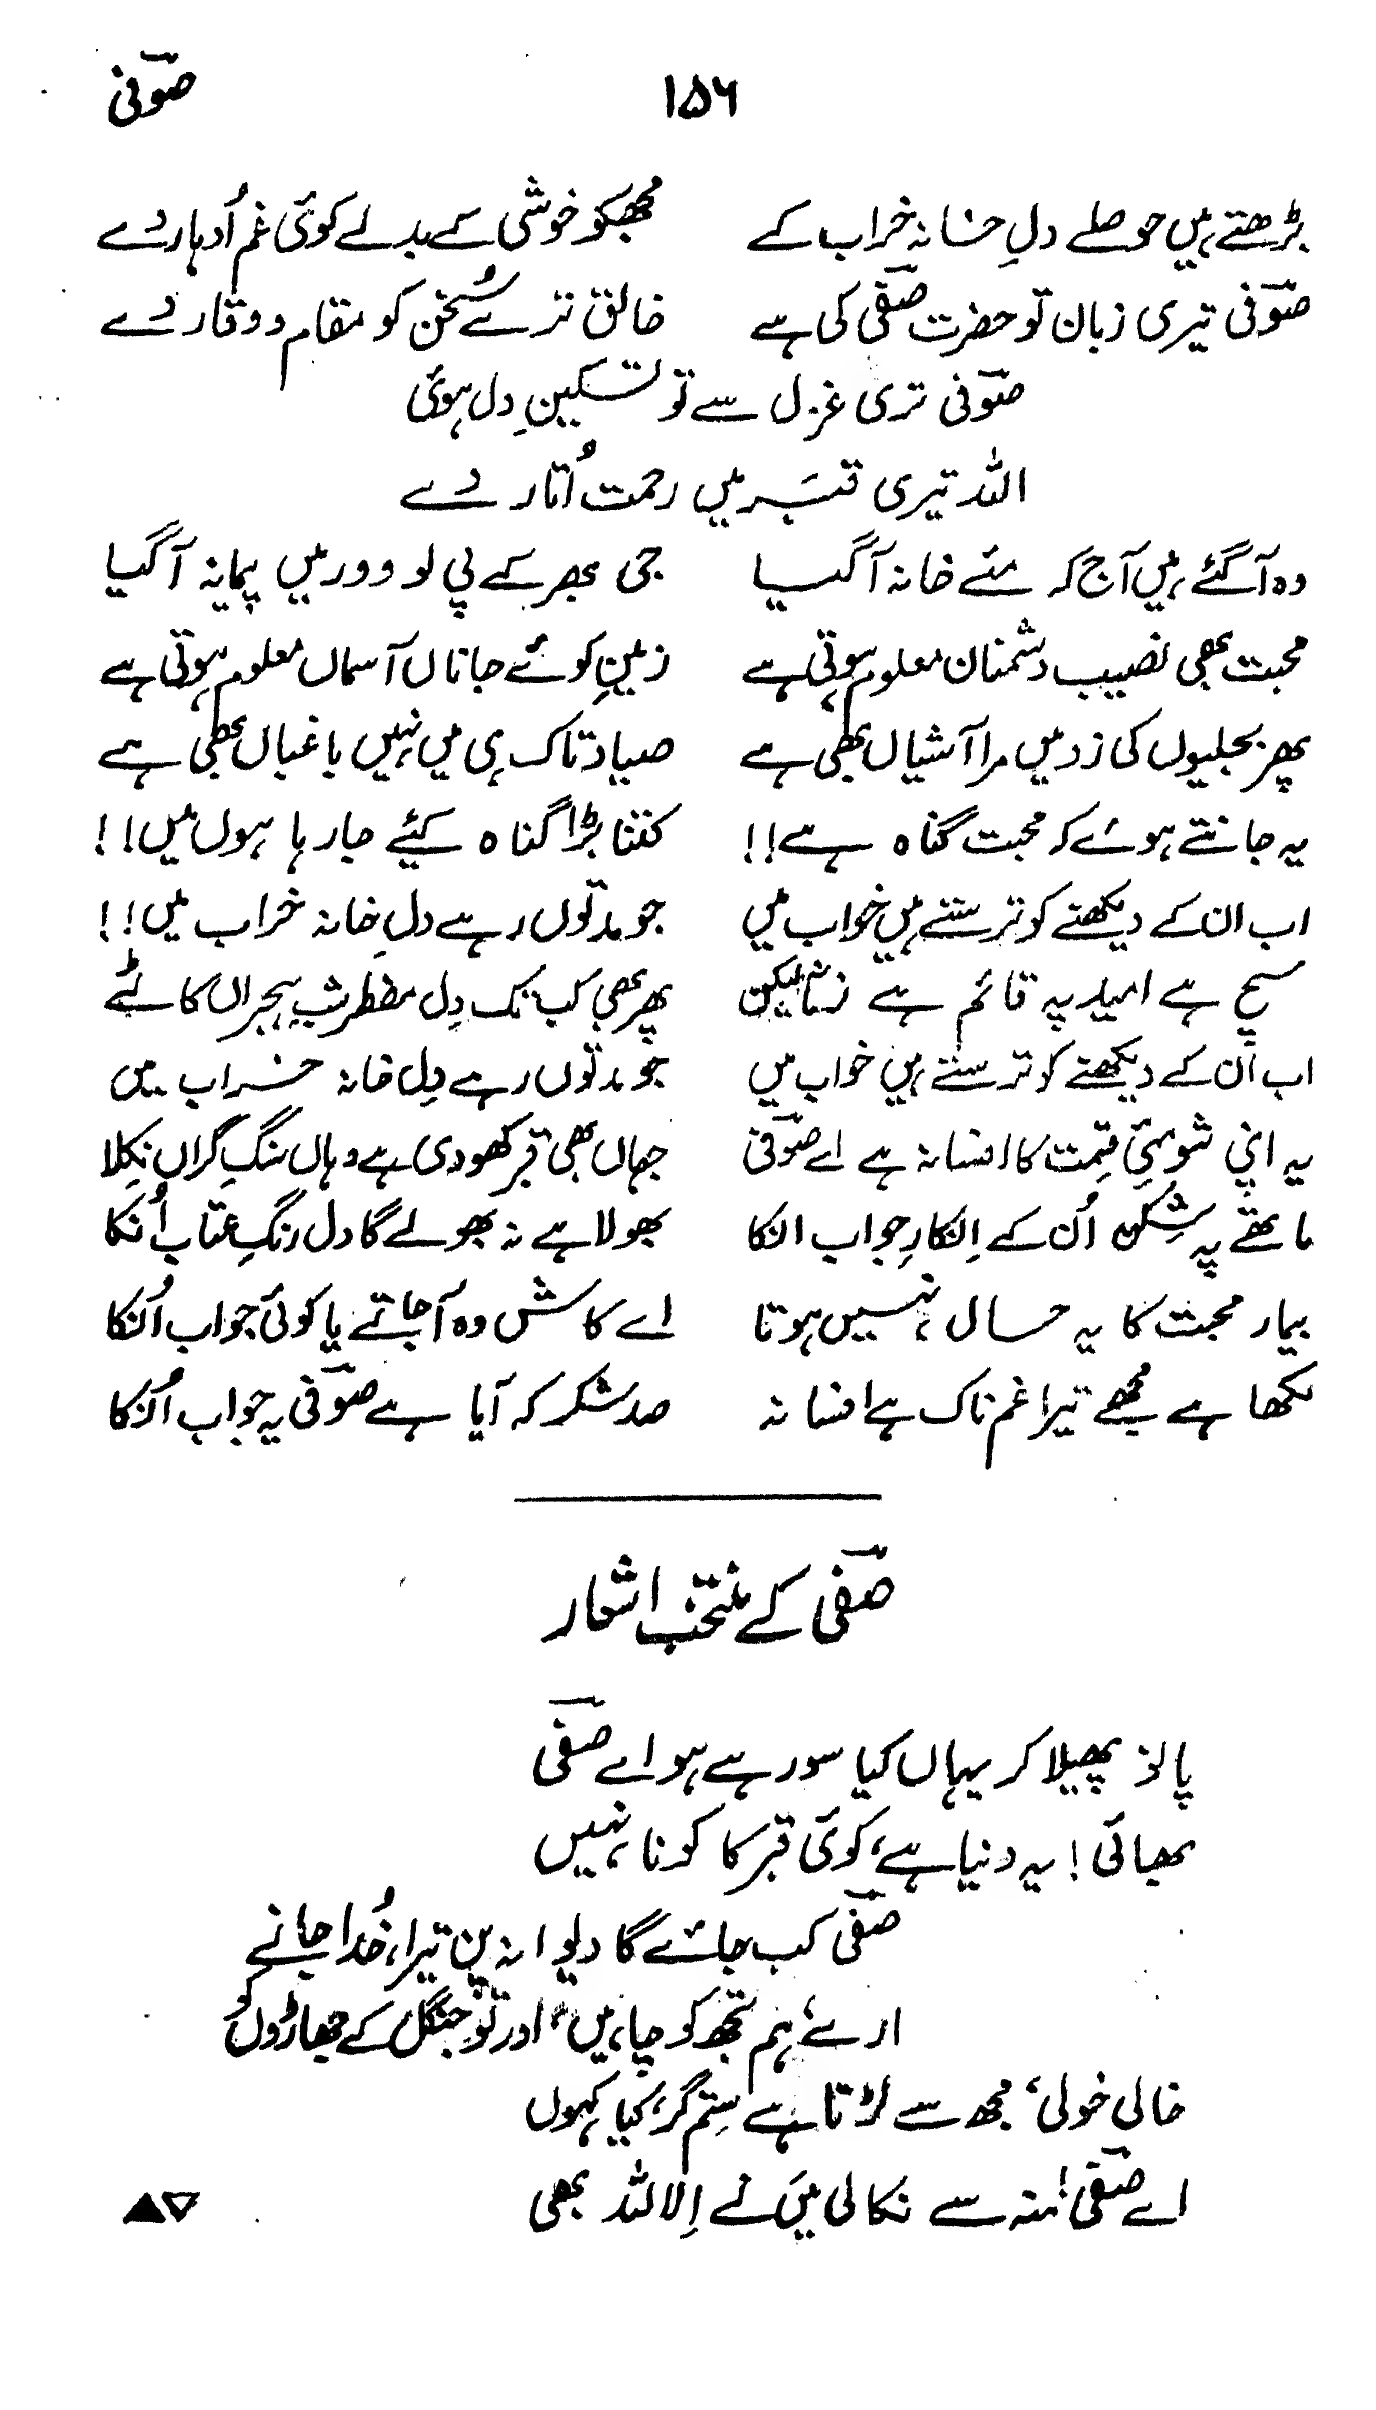 صوفی ۱۵۶
بڑھتے ہیں حوصلے دلِ خانہ خراب کے مجھکو خوشی کے بدلے کوئی غم اُدہار دے
صوفی تیری زبان تو حضرت صفی کی ہے خالق ترے سُخن کو مقام و وقار دے
صوفی تری غزل سے تو تسکینِ دِل ہوئی
اللہ تیری قبر میں رحمت اُتار دے
وہ آگئے ہیں آج کہ مئے خانہ آگیا جی بھر کے پی لو دور میں پیمانہ آگیا
محبت بھی نصیب دشمنان معلوم ہوتی ہے زمینِ کوئے جاناں آسماں معلوم ہوتی ہے
پھر بجلیوں کی زد میں مرا آشیاں بھی ہے صیاد تاک ہی میں نہیں باغباں بھی ہے
یہ جانتے ہوئے کہ محبت گناہ ہے!! کتنا بڑا گناہ کیئے جارہا ہوں میں!!
اب ان کے دیکھنے کو ترستے ہیں خواب میں جو مدتوں رہے دلِ خانہ خراب میں!!
سچ ہے امید پہ قائم ہے زمانہ لیکن پھر بھی کب تک دِل مضطر شبِ ہجراں کاٹے
اب اُن کے دیکھنے کو ترستے ہیں خواب میں جو مدتوں رہے دِل خانہ خراب میں
یہ اپنی شومئِ قِسمت کا افسانہ ہے اے صوفی جہاں بھی قبر کھودی ہے وہاں سنگِ گراں نِکلا
ماتھے پہ شِکن اُن کے اِنکارِ جواب انکا بھولا ہے نہ بھولے گا دل رنگِ عتاب اُنکا
بیمار محبت کا یہ حال نہیں ہوتا اے کاش وہ آجاتے یا کوئی جواب اُنکا
لکھا ہے مجھے تیرا غم ناک ہے افسانہ صد شکر کہ آیا ہے صوفی یہ جواب اُنکا
صفی کے منتخب اشعار
پاؤں پھیلا کر یہاں کیا سو رہے ہو اے صفی
بھائی! یہ دنیا ہے، کوئی قبر کا کونا نہیں
صفی کب جائے گا دیوانہ پن تیرا، خُدا جانے
ارے، ہم تجھ کو چاہیں، اور تو جنگل کے جھاڑوں کو
خالی خولی، مجھ سے لڑتا ہے سِتم گر، کیا کہوں
اے صفی! منہ سے نکالی میں نے اِلااللہ بھی